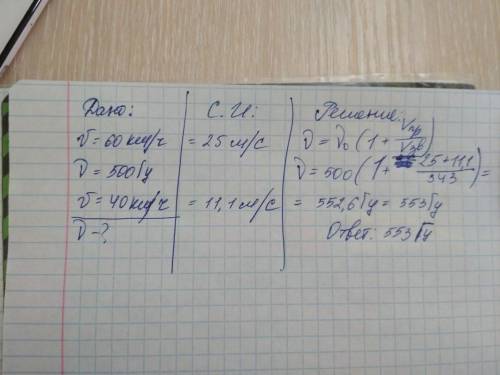 Дано:
v = 60 км/ч
ν = 500 Гц
v = 40 км/ч
ν - ?
С.И.:
= 25 м/с
= 11,1 м/с
Решение:
ν = ν₀ (1 + Vпр/Vзв)
ν = 500 (1 + 25 + 11,1/343) =
= 552,6 Гц = 553 Гц
Ответ: 553 Гц